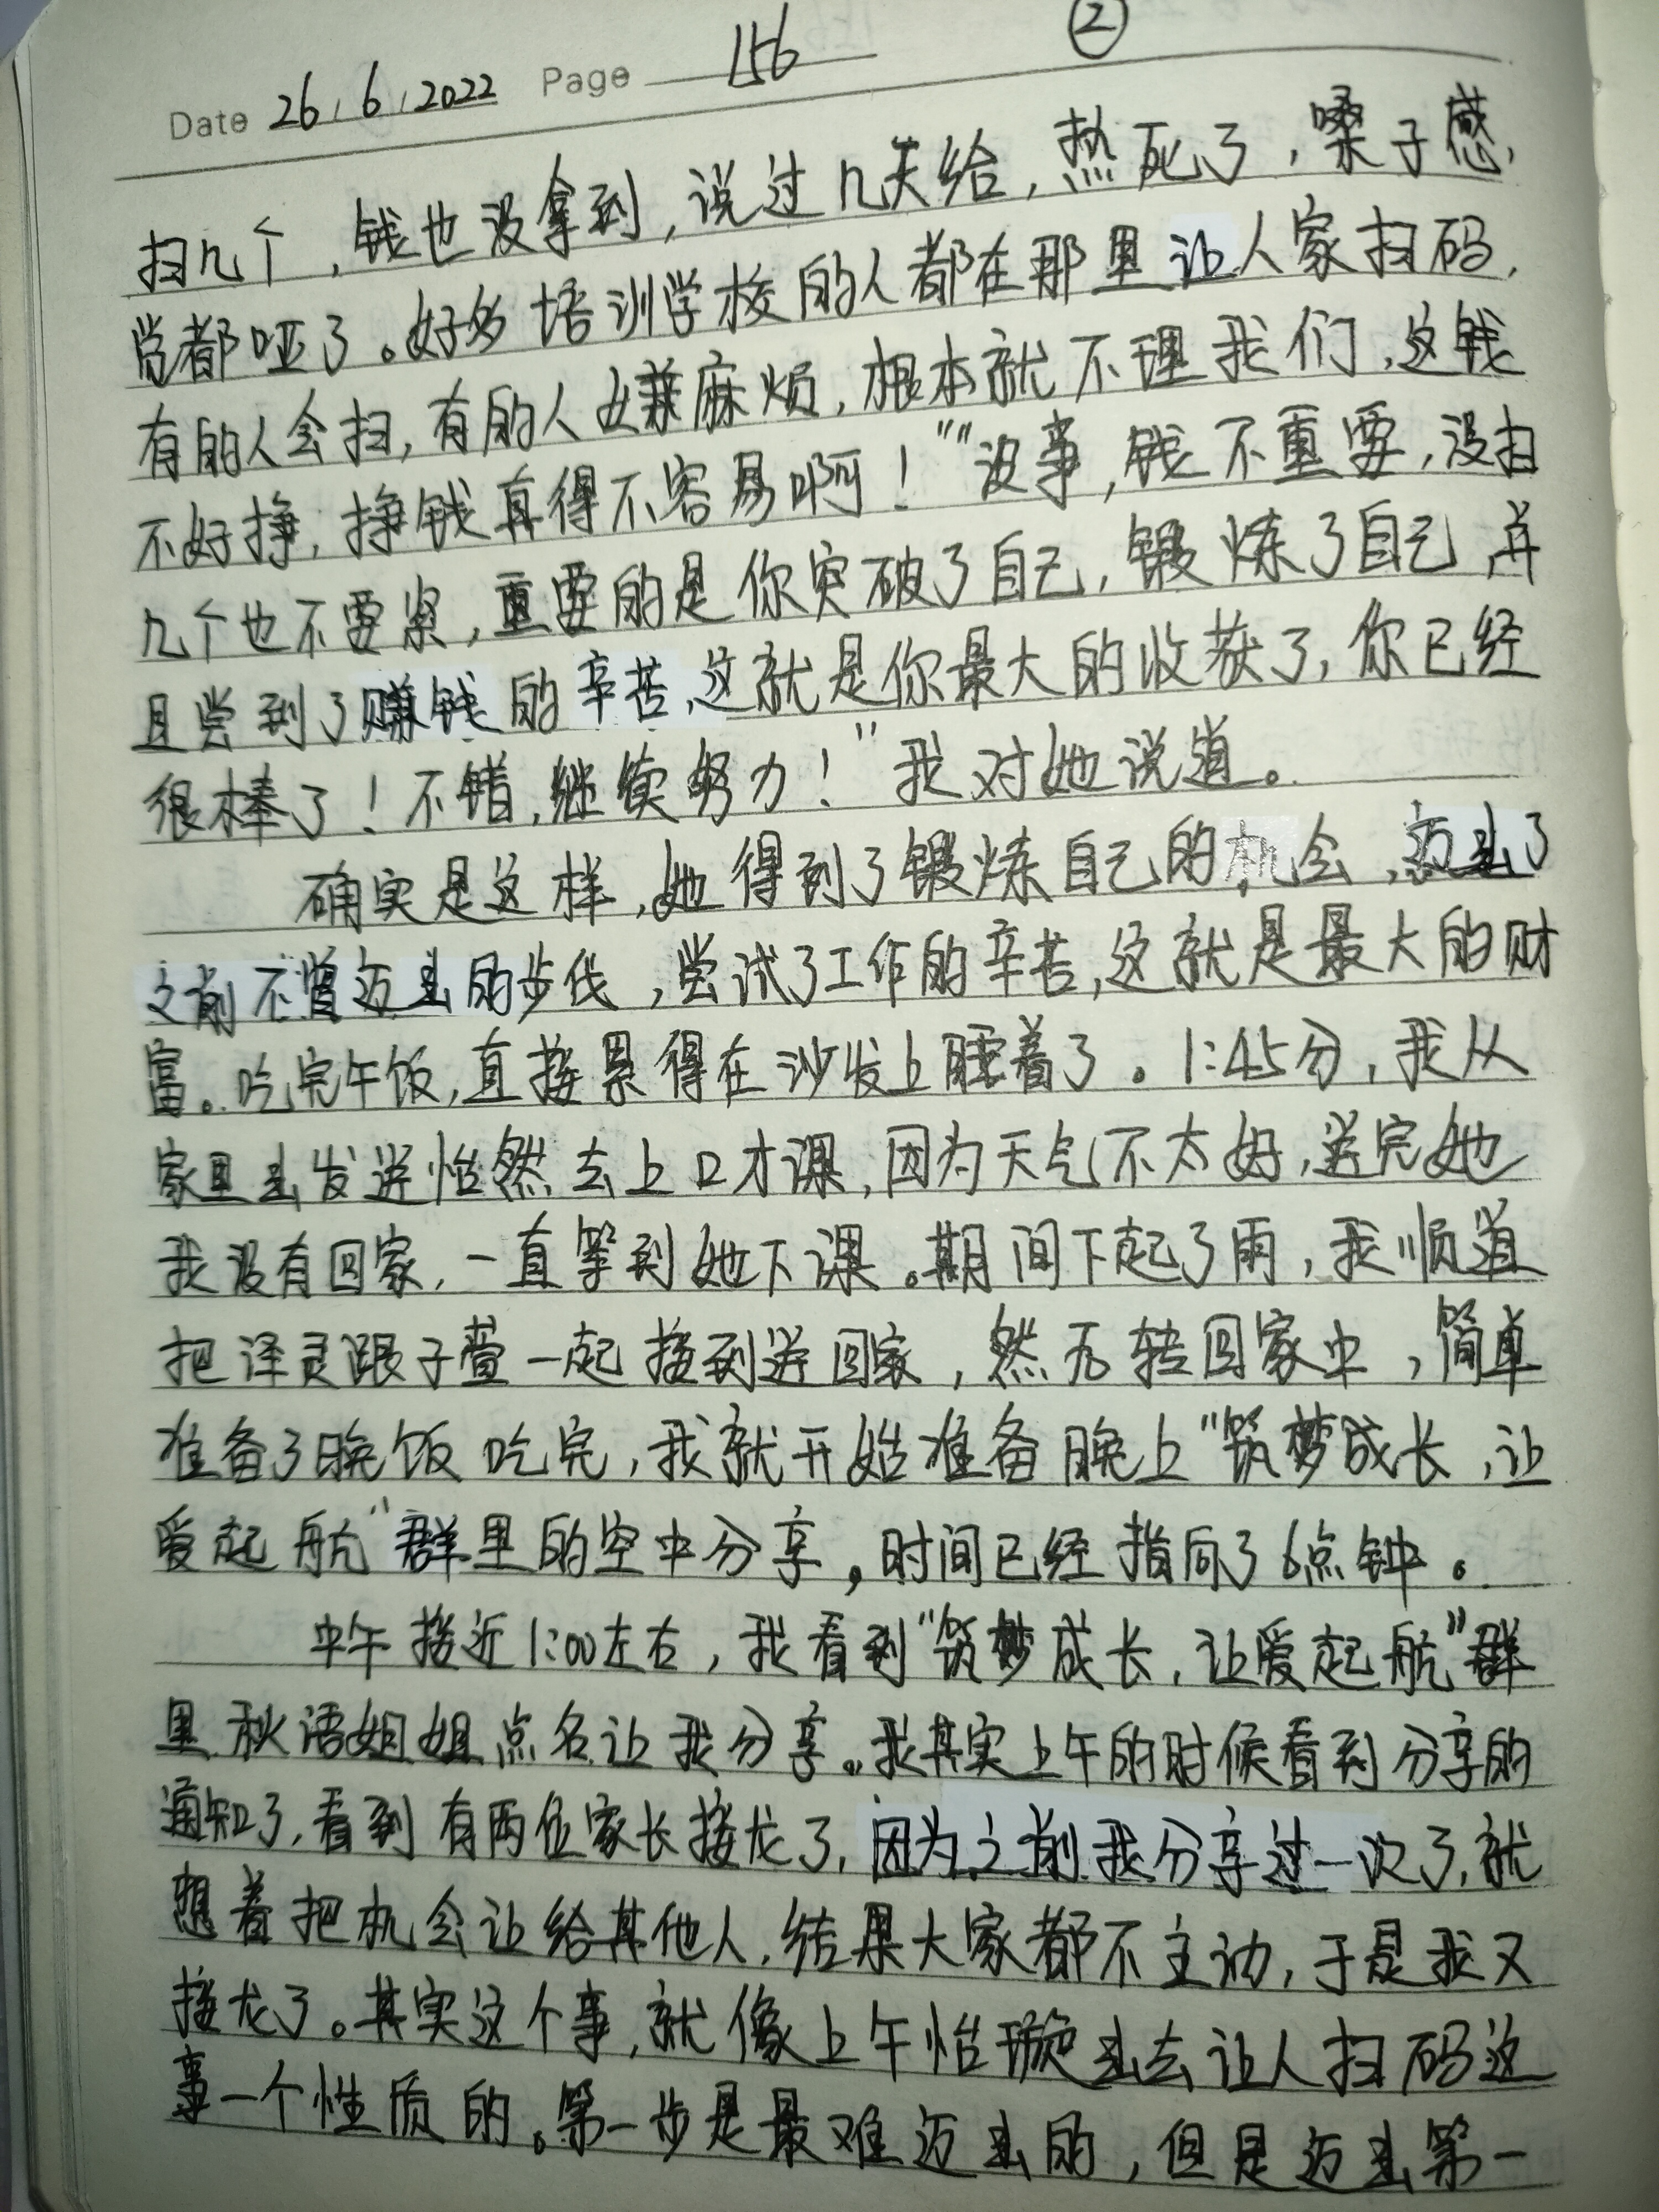 Date 26/6/2022 Page 156 ②
扫几个,钱也没拿到,说过几天给,热死了,嗓子感
觉都哑了。好多培训学校的人都在那里让人家扫码,
有的人会扫,有的人女兼麻烦,根本就不理我们,这钱
不好挣,挣钱真得不容易啊!""没事,钱不重要,没扫
几个也不要紧,重要的是你突破了自己,锻炼了自己并
且尝到了赚钱的辛苦,这就是你最大的收获了,你已经
很棒了!不错,继续努力!"我对她说道。
确实是这样,她得到了锻炼自己的机会,迈出了
之前不曾迈出的步伐,尝试了工作的辛苦,这就是最大的财
富。吃完午饭,直接累得在沙发上睡着了。1:45分,我从
家里出发送怡然去上口才课,因为天气不太好,送完她
我没有回家,一直等到她下课。期间下起了雨,我顺道
把译灵跟子萱一起接到送回家,然后转回家中,简单
准备了晚饭吃完,我就开始准备晚上"筑梦成长,让
爱起航"群里的空中分享,时间已经指向了6点钟。
中午接近1:00左右,我看到"筑梦成长,让爱起航"群
里秋语姐姐点名让我分享。我其实上午的时候看到分享的
通知了,看到有两位家长接龙了,因为之前我分享过一次了,就
想着把机会让给其他人,结果大家都不主动,于是我又
接龙了。其实这个事,就像上午怡璇出去让人扫码这
事一个性质的。第一步是最难迈出的,但是迈出第一